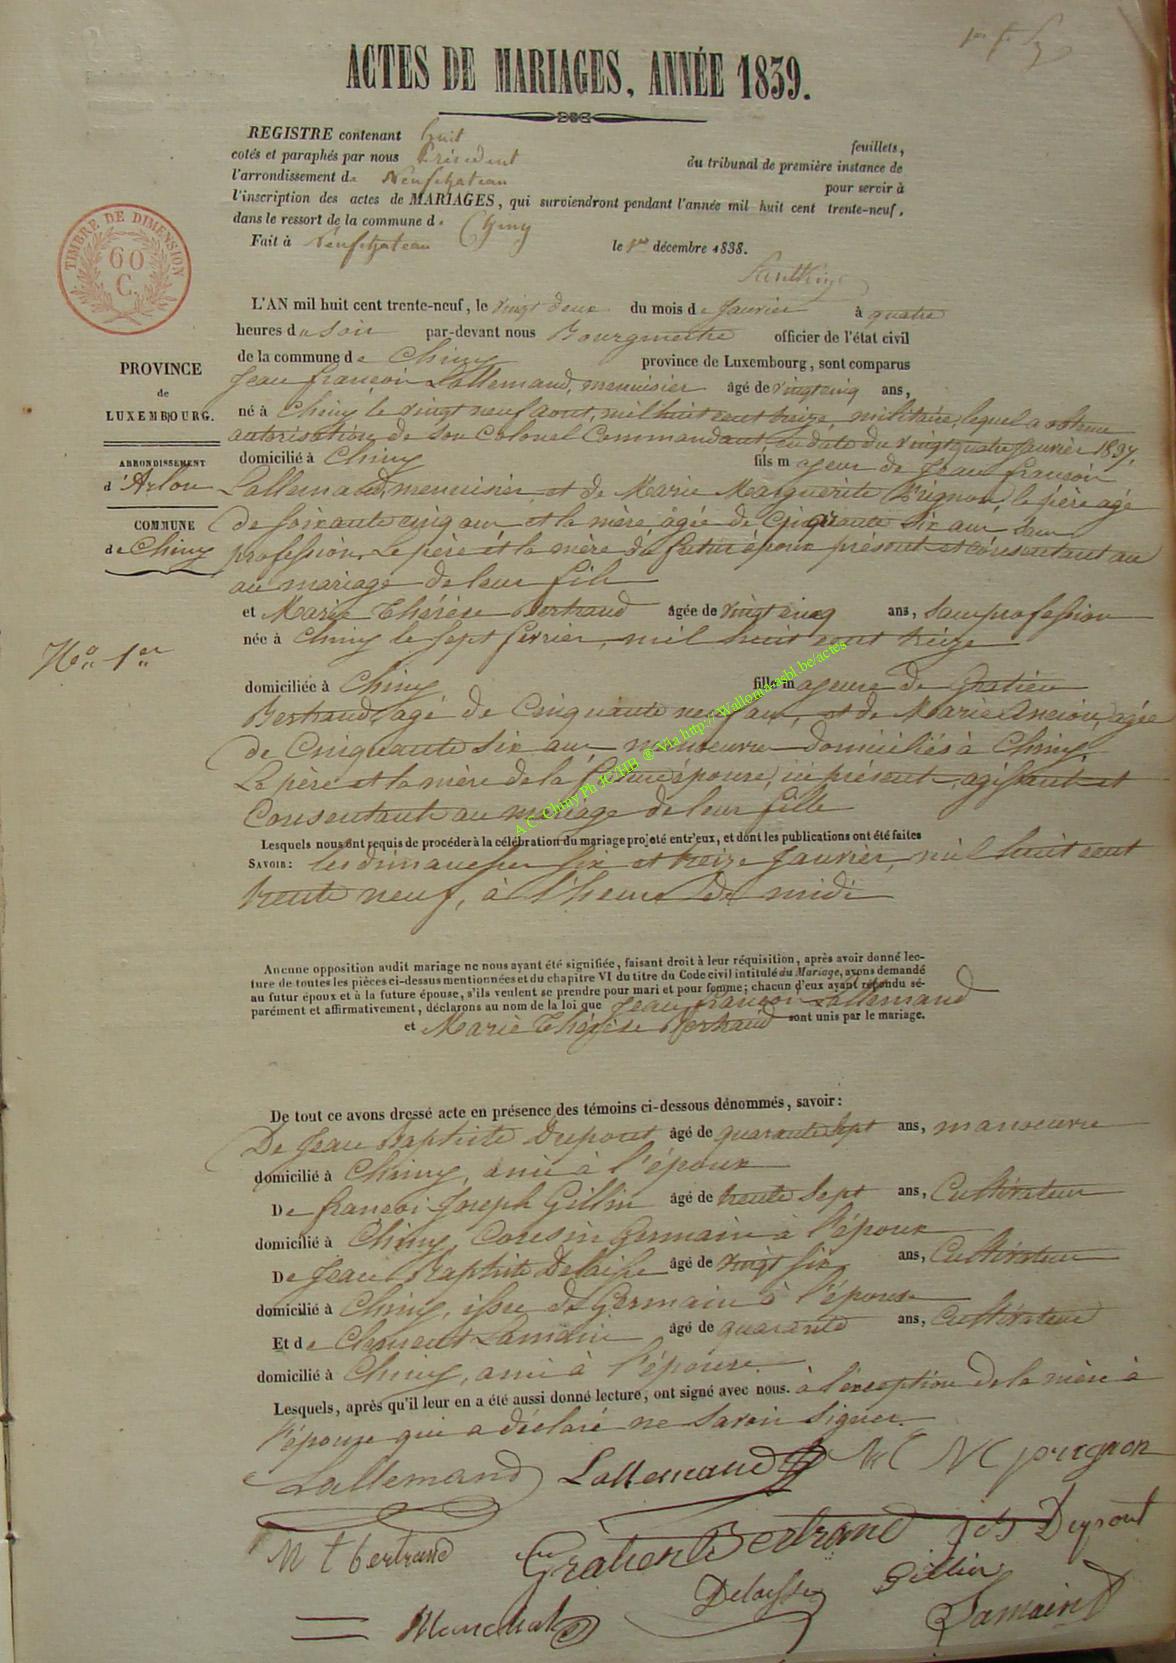 ACTES DE MARIAGES, ANNÉE 1839.
REGISTRE contenant huit feuillets,
cotés et paraphés par nous Président du tribunal de première instance de
l'arrondissement de Neufchateau pour servir à
l'inscription des actes de MARIAGES, qui surviendront pendant l'année mil huit cent trente-neuf,
dans le ressort de la commune d. Chiny
Fait à Neufchateau le 1er décembre 1838.
TIMBRE DE DIMENSION
60
C.
L'AN mil huit cent trente-neuf, le vingt deux du mois de Janvier à quatre
heures du soir par-devant nous Bourgmestre officier de l'état civil
de la commune de Chiny province de Luxembourg, sont comparus
PROVINCE
de
LUXEMBOURG.
ARRONDISSEMENT
d'Arlon
COMMUNE
de Chiny
No 1er
Jean françois Lallemand, menuisier âgé de vingt cinq ans,
né à Chiny le vingt neuf aout, mil huit cent treize, militaire, lequel a obtenu
autorisation de son Colonel Commandant en date du vingt quatre Janvier 1837,
domicilié à Chiny fils majeur de Jean françois
Lallemand, menuisier et de Marie Marguerite Prignon, le père agé
de soixante cinq ans et la mère âgée de Cinquante six ans, sans
profession, Le père et la mère du futur époux présent et consentant au
au mariage de leur fils
et Marie Thérèse Bertrand âgée de vingt cinq ans, sans profession
née à Chiny le sept fevrier, mil huit cent treize
domiciliée à Chiny fille majeure de Gratien
Bertrand, agé de Cinquante neuf ans, et de Marie Ancion, agée
de Cinquante six ans, manoeuvre domiciliés à Chiny
Le père et la mère de la future épouse, ici présent, agissant et
Consentant au mariage de leur fille
Lesquels nous ont requis de procéder à la célébration du mariage projeté entr'eux, et dont les publications ont été faites
SAVOIR: les dimanches six et treize Janvier, mil huit cent
trente neuf, à l'heure de midi
Aucune opposition audit mariage ne nous ayant été signifiée, faisant droit à leur réquisition, après avoir donné lec-
ture de toutes les pièces ci-dessus mentionnées et du chapitre VI du titre du Code civil intitulé du Mariage, avons demandé
au futur époux et à la future épouse, s'ils veulent se prendre pour mari et pour femme; chacun d'eux ayant répondu sé-
parément et affirmativement, déclarons au nom de la loi que Jean françois Lallemand
et Marie Thérèse Bertrand sont unis par le mariage.
De tout ce avons dressé acte en présence des témoins ci-dessous dénommés, savoir:
De Jean Baptiste Dupont âgé de quarante sept ans, manoeuvre
domicilié à Chiny, ami à l'époux
De françois Joseph Gillin âgé de trente sept ans, Cultivateur
domicilié à Chiny, Cousin Germain à l'époux
De Jean Baptiste Delaisse âgé de vingt six ans, Cultivateur
domicilié à Chiny, issu de Germain à l'épouse
Et de Clement Lamain âgé de quarante ans, Cultivateur
domicilié à Chiny, ami à l'épouse.
Lesquels, après qu'il leur en a été aussi donné lecture, ont signé avec nous. à l'exception de la mère à
l'épouse qui a déclaré ne savoir signer.
Lallemand Lallemand M M prignon
M t bertrand Gratien Bertrand J B Dupont
Delaisse Gillin
Marechal Lamain
A.C. Chiny Ph JC/HB ® Via http://Wallonia-asbl.be/actes